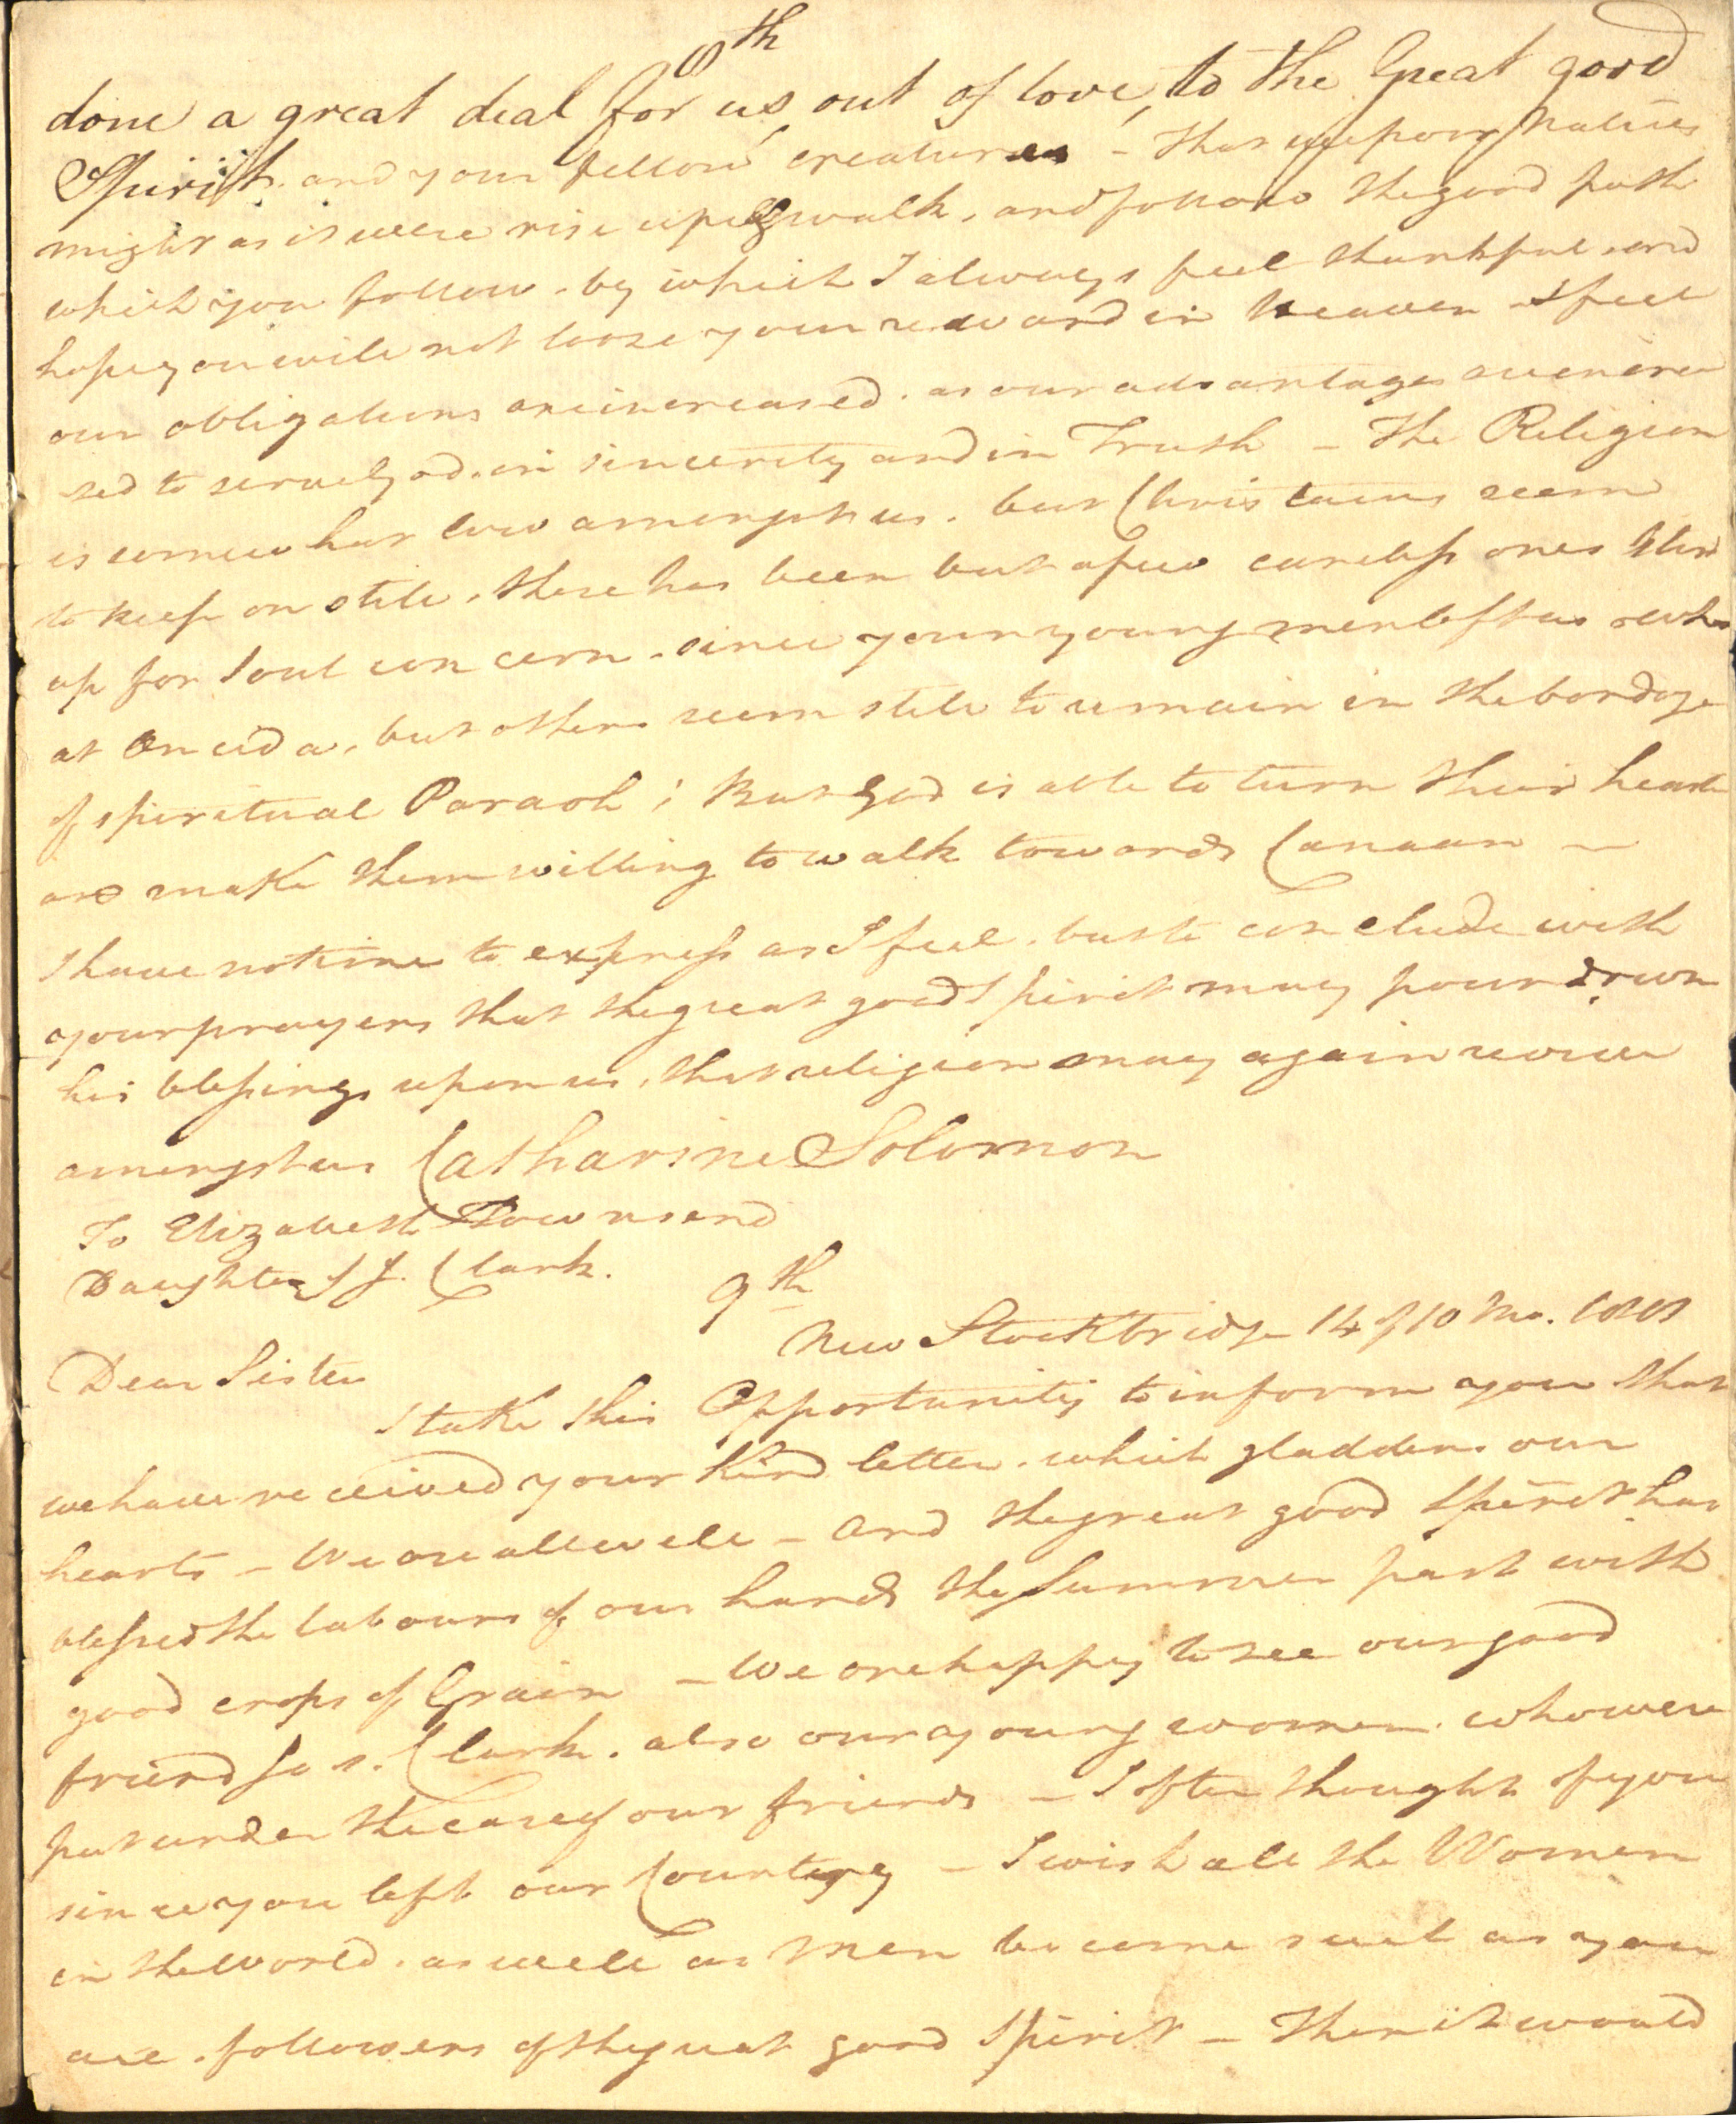 8th
done a great deal for us out of love, to the Great good
Spirit. and your fellow creatures - that we poor natives
might as it were rise up & walk, and follow the good path
which you follow. by which I always feel thankful and
hope you will not loose your reward in heaven - I feel
our obligations are increased. as our advantages are increa
sed to serve god. in sincerity and in Truth - The Religion
is somewhat low amongst us. but Christians seem
to keep on still, there has been but a few careless ones
up for Soul con cern. since your young men left us
at Oneida, but others seem still to remain in the bondage
of spiritual Paraoh; But God is able to turn their hearts
and make them willing to walk towards Canaan -
I have not time to express as I feel. but to conclude with
your prayers that the great good Spirit may pour down
his blessings upon us, that religion may again revive
amongst us Catharine Solomon
To Elizabeth Townsend
Daughter of J. Clark.
9th
New Stockbridge 14 of 10 Mo.
Dear Sister
I take this Opportunity to inform you that
we have received your kind letter. which gladdens our
hearts - We are all well - and the great good Spirit has
blessed the labours of our hands the Summer past with
good crops of Grain - We are happy to see our good
friend Jas. Clark. also our young women. who were
put under the care of our friends - I often thought of you
since you left our Country - I wish all the Women
in the world. as well as men become such as you
are. followers of the great good Spirit - Then it would